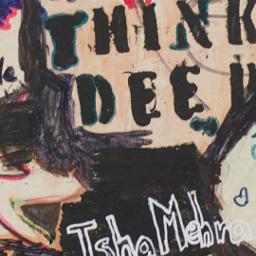 THINK
DEEP
Isha Mehra